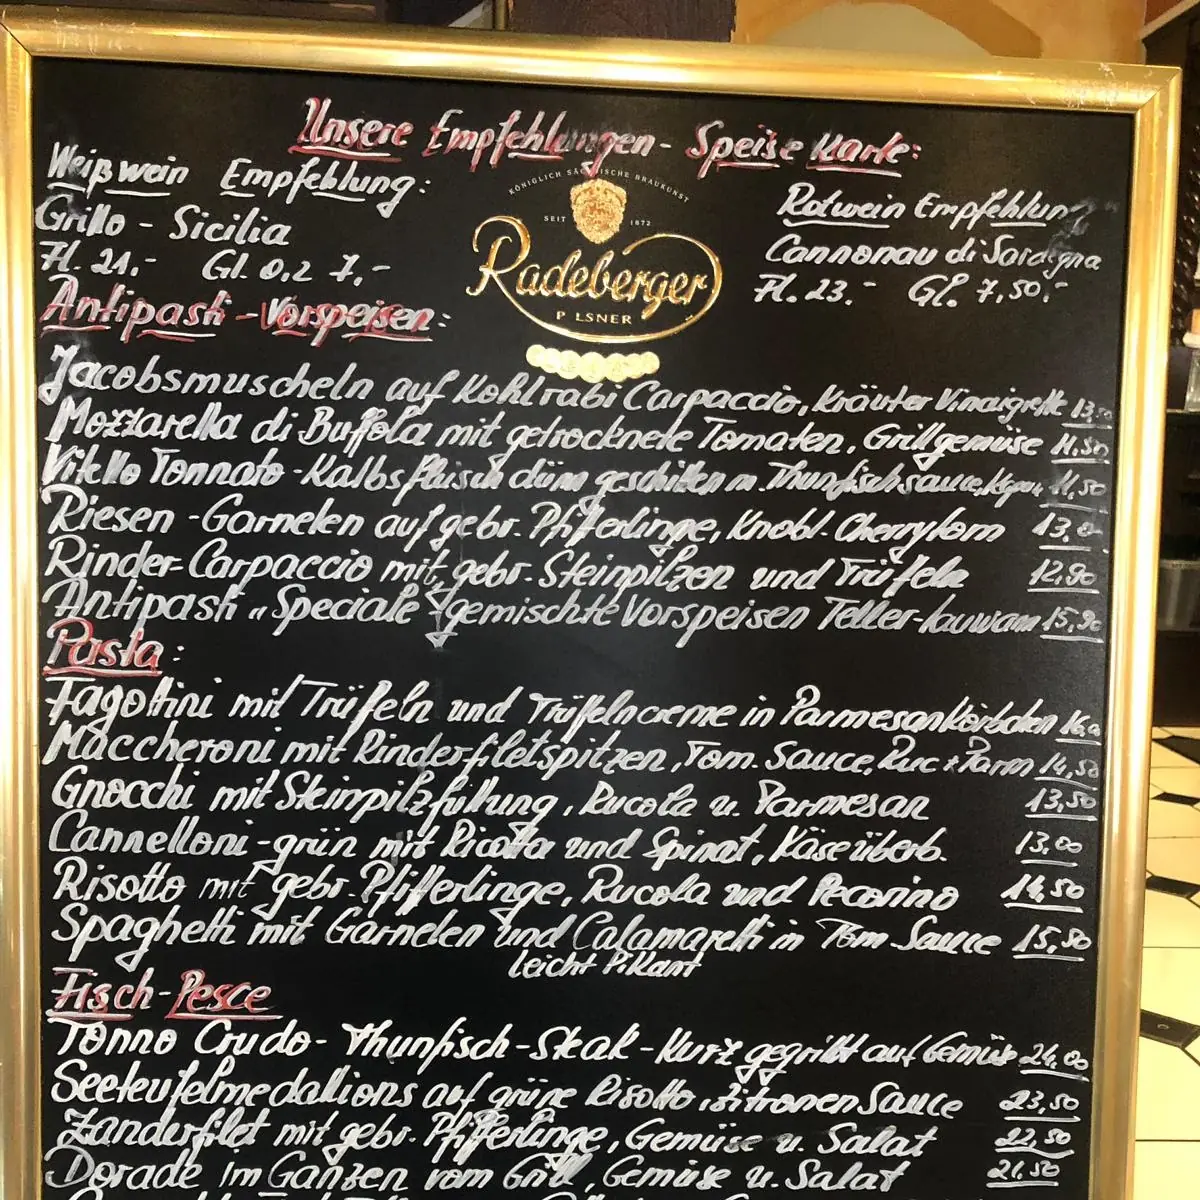 Unsere Empfehlungen - Speise Karte:
Weißwein Empfehlung:
Grillo - Sicilia
Fl. 21.- Gl. 0,2 7,-
KÖNIGLICH SÄCHSISCHE BRAUKUNST
SEIT 1872
Radeberger
P LSNER
Rotwein Empfehlung
Cannonau di Sardegna
Fl. 23.- Gl. 7,50.-
Antipasti - Vorspeisen:
Jacobsmuscheln auf Kohlrabi Carpaccio, Kräuter Vinaigrette 13,50
Mozzarella di Buffola mit getrocknete Tomaten, Grillgemüse 11,50
Vitello Tonnato - Kalbsfleisch dünn geschnitten m. Thunfischsauce, 11,50
Riesen - Garnelen auf gebr. Pfifferlinge, Knobl. Cherrytom 13,00
Rinder-Carpaccio mit gebr. Steinpilzen und Trüfeln 12,90
Antipasti „Speciale" gemischte Vorspeisen Teller - lauwarm 15,90
Pasta:
Fagottini mit Trüfeln und Trüfelncreme in Parmesankörbchen
Maccheroni mit Rinderfiletspitzen, Tom. Sauce, Ruc + Parm 14,50
Gnocchi mit Steinpilzfüllung, Rucola u. Parmesan 13,50
Cannelloni - grün mit Ricotta und Spinat, Käse überb. 13,00
Risotto mit gebr. Pfifferlinge, Rucola und Pecorino 14,50
Spaghetti mit Garnelen und Calamaretti in Tom. Sauce 15,80
leicht Pikant
Fisch - Pesce
Tonno Crudo - Thunfisch - Steak - Kurz gegrillt auf Gemüse 24,00
Seeteufelmedallions auf grüne Risotto, Zitronen Sauce 23,50
Zanderfilet mit gebr. Pfifferlinge, Gemüse u. Salat 22,50
Dorade im Ganzen vom Grill, Gemüse u. Salat 21,50